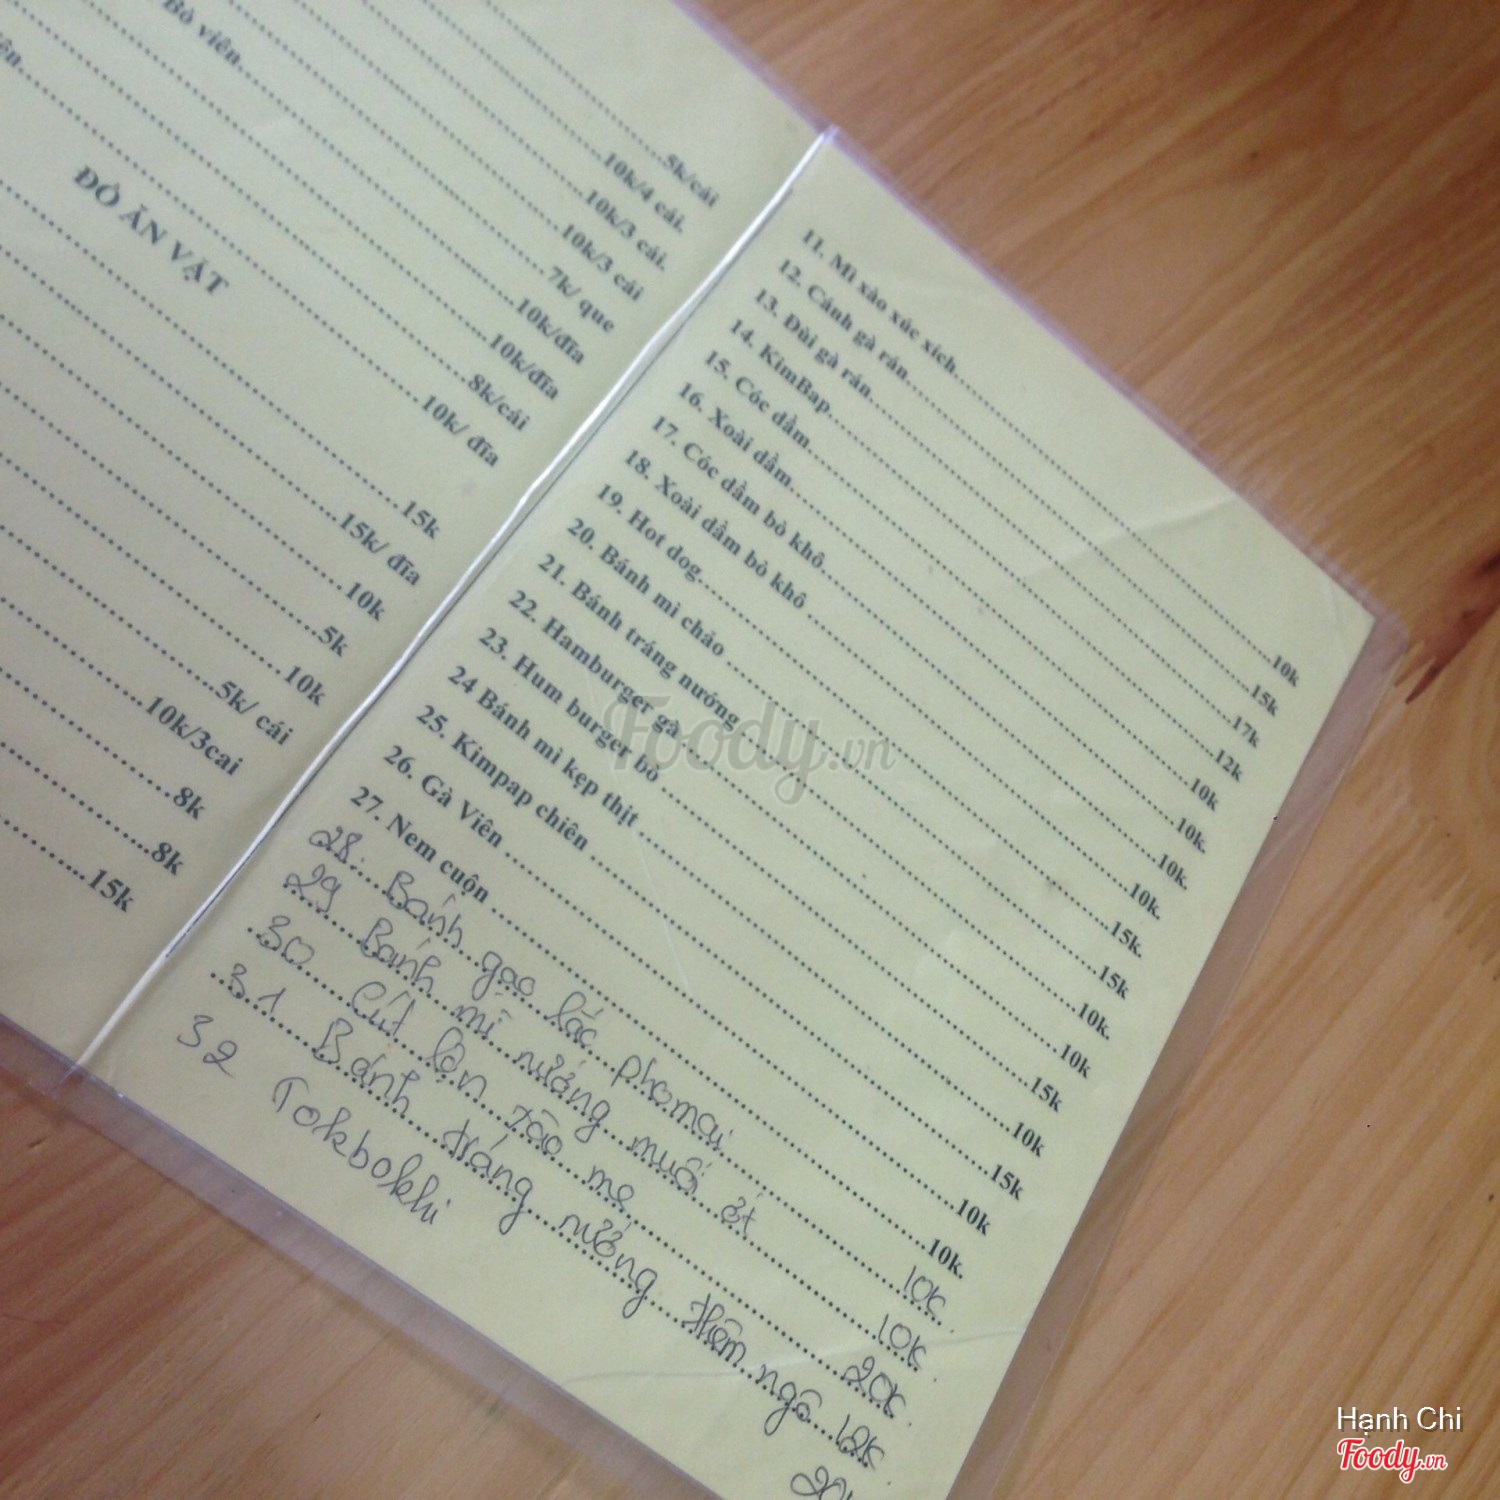 Bò viên
5k/cái
10k/4 cái.
10k/3 cái.
10k/3 cái
7k/ que
10k/đĩa
10k/đĩa
8k/cái
10k/ đĩa
ĐỒ ĂN VẶT
15k
15k/ đĩa
10k
5k
10k
5k/ cái
10k/3cai
8k
8k
15k
11. Mì xào xúc xích 10k
12. Cánh gà rán 15k
13. Đùi gà rán 17k
14. KimBap 12k
15. Cóc dầm 10k
16. Xoài dầm 10k.
17. Cóc dầm bò khô 10k.
18. Xoài dầm bò khô 10k.
19. Hot dog 15k.
20. Bánh mì chảo 15k
21. Bánh tráng nướng 10k.
22. Hamburger gà 10k
23. Hum burger bò 15k
24 Bánh mì kẹp thịt 10k
25. Kimpap chiên 15k
26. Gà Viên 10k
27. Nem cuộn 10k.
28. Bánh gạo lắc phomai 10k.
29 Bánh mì nướng muối ớt 10k.
30 Cút lộn xào me 20k.
31 Bánh tráng nướng thêm ngô 12k
32 Tokbokki 20k
Foody.vn
Hạnh Chi
Foody.vn